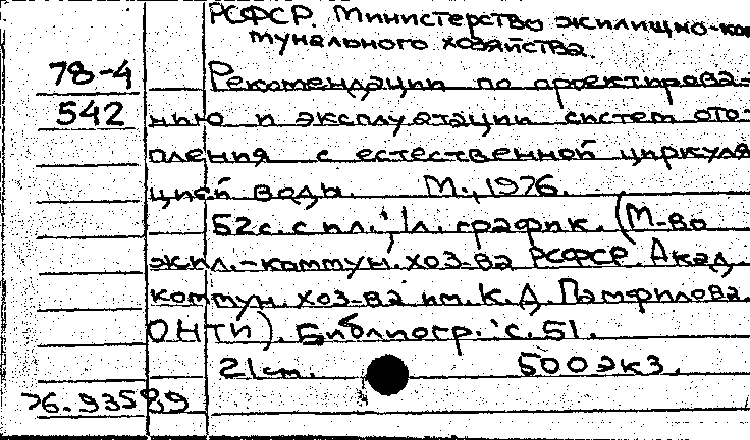 РСФСР. Министерство жилищно-ком
мунального хозяйства.
78-4 Рекомендации по проектирова-
542 нию и эксплуатации систем ото-
пления с естественной циркуля
цией воды. М., 1976.
52с. с ил.; 1л. график. (М-во
жил.-коммун. хоз-ва РСФСР. Акад.
коммун. хоз-ва им. К.Д. Памфилова.
ОНТИ). Библиогр.: с. 51.
21см. 500экз.
76.93589